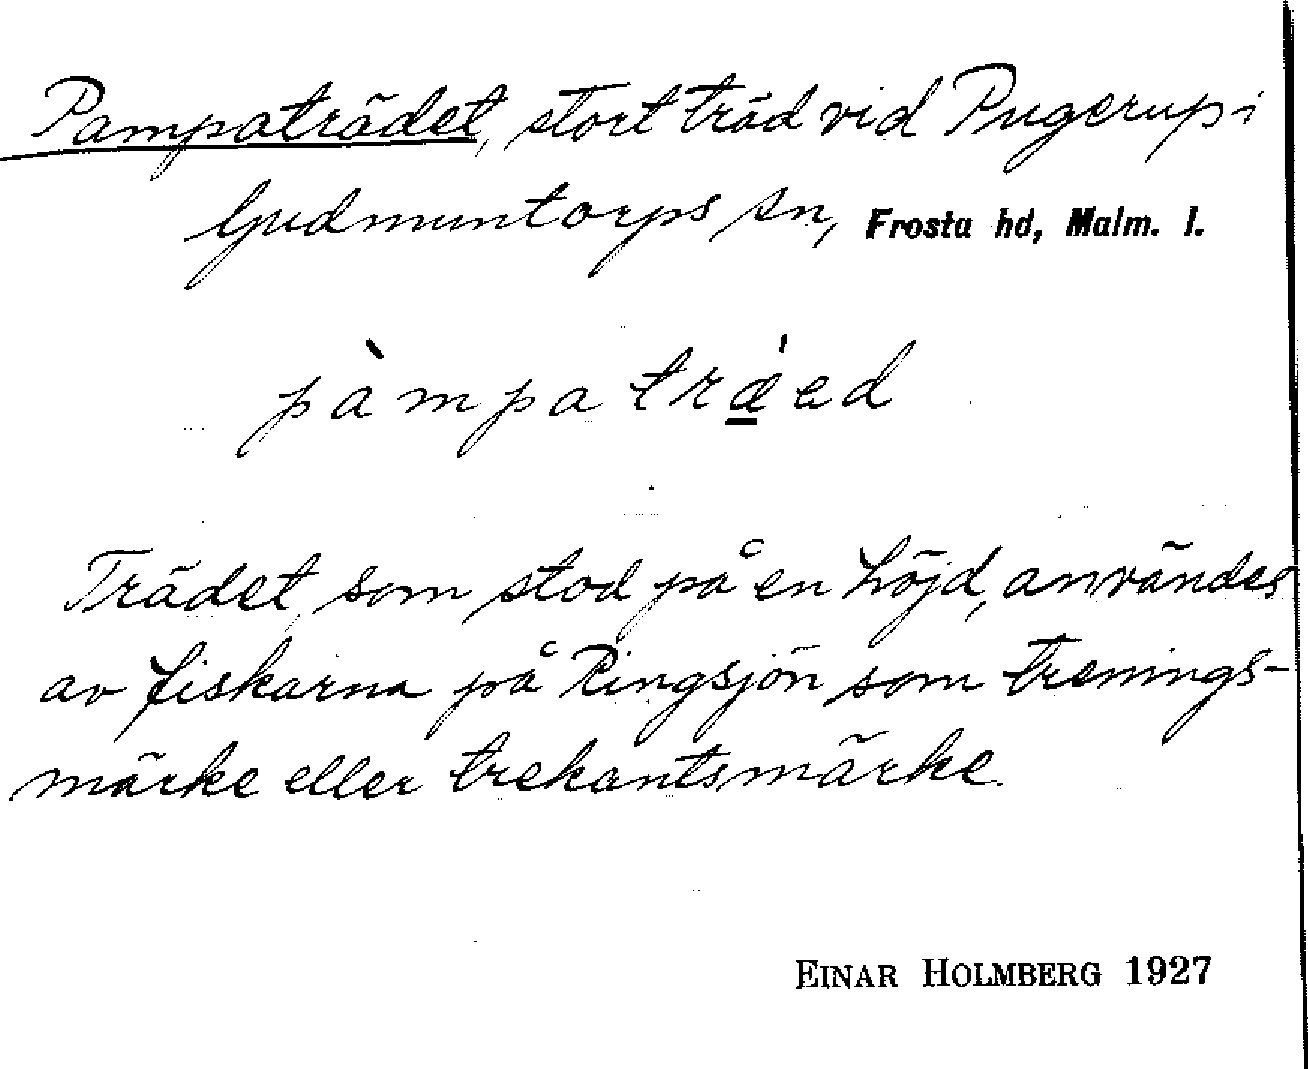 Pampaträdet, stort träd vid Pugerup i
Gudmuntorps sn, Frosta hd, Malm. l.
pàmpa træ̀ed
Trädet, som stod på en höjd, användes
av fiskarna på Ringsjön som trenings-
märke eller trekantsmärke.
EINAR HOLMBERG 1927